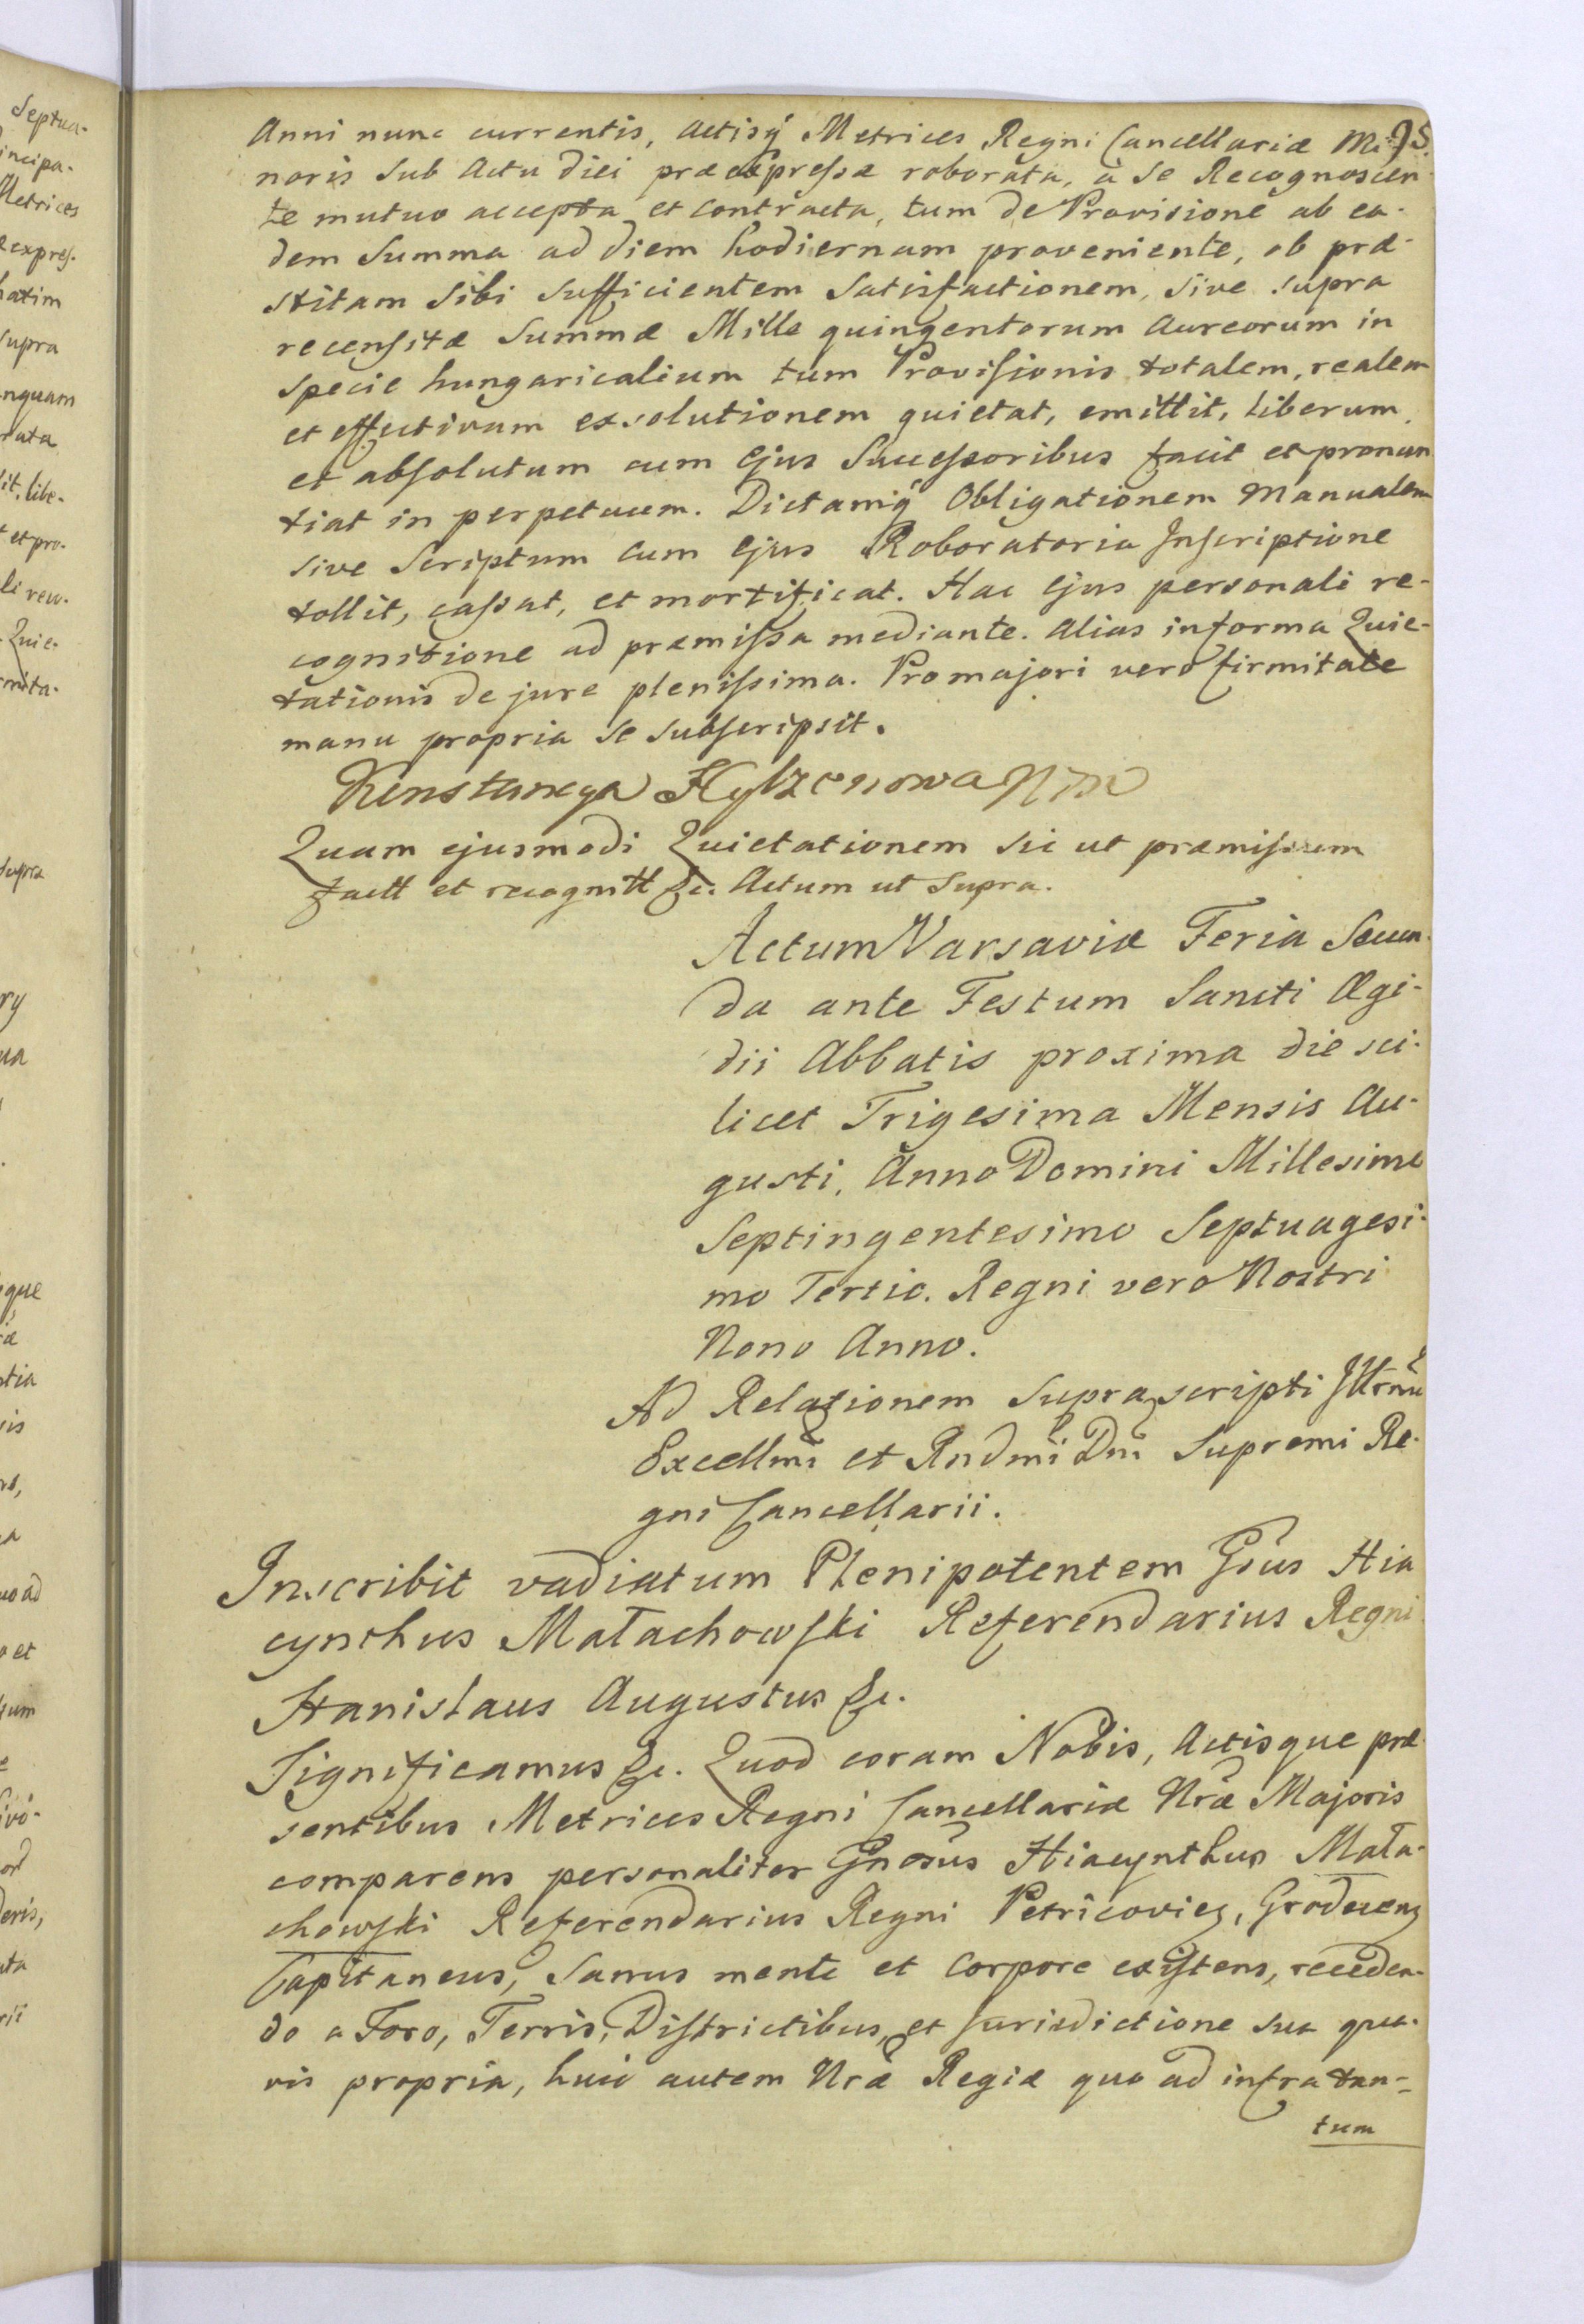 Anni nunc currentis, Actisq́ Metrices Regni Cancellariæ Mi-
noris sub Actu diei præexpressæ roborata, à se Recognoscen-
te mutuo accepta et contracta, tum de Provisione ab ea-
dem Summa ad diem hodiernam proveniente, ob præ-
stitam sibi sufficientem satisfactionem, sive supra
recensitæ Summæ Mille quingentorum Aureorum in
specie hungaricalium tum Provisionis totalem, realem
et effectivam exsolutionem quietat, emittit, liberum
et absolutum cum Ejus Successoribus facit et pronun
tiat in perpetuum. Dictamq́ Obligationem Manualem
sive Scriptum cum Ejus Roboratoria Inscriptione
tollit, cassat, et mortificat. Hac Ejus personali re-
cognitione ad præmissa mediante. Alias in forma Quie-
tationis de jure plenissima. Pro majori vero firmitate
manu propria se subscripsit.
Konstancya Hylzenowa
Quam ejusmodi Quietationem sic ut præmissum
factt et recognitt &c. Actum ut supra.
Actum Varsaviæ Feria Secun-
da ante Festum Sancti Ægi-
dii Abbatis proxima die sci-
licet Trigesima Mensis Au-
gusti, Anno Domini Millesimo
Septingentesimo Septuagesi-
mo Tertio. Regni vero Nostri
Nono Anno.
Ad Relationem suprascripti
Excellmi et Rndmi Dni Supremi Re-
gni Cancellarii.
Inscribit vadiatum Plenipotentem Gsus Hia
cynthus Małachowski Referendarius Regni
Stanislaus Augustus &c.
Significamus &c. Quod coram Nobis, Actisque præ
sentibus Metrices Regni Cancellariæ Nræ Majoris
comparens personaliter Gnosus Hiacynthus Mała-
chowski Referendarius Regni Petricovien, Grodecen
Capitaneus, Sanus mente et Corpore existens, receden-
do a Foro, Terris, Districtibus, et Jurisdictione sua qua-
vis propria, huic autem Nræ Regiæ quo ad infra tan-
tum